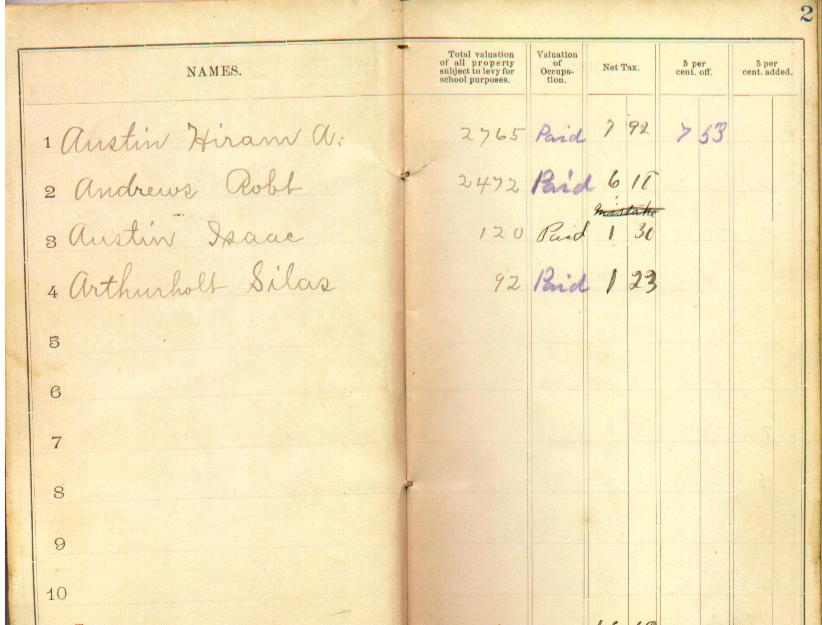 2
NAMES.
Total valuation of all property subject to levy for school purposes.
Valuation of Occupa-tion.
Net Tax.
5 per cent. off.
5 per cent. added.
1 Austin Hiram A. 2765 Paid 7 92 7 53
2 Andrews Robt 2472 Paid 6 18
mistake
3 Austin Isaac 120 Paid 1 30
4 Arthurholt Silas 92 Paid 1 23
5
6
7
8
9
10